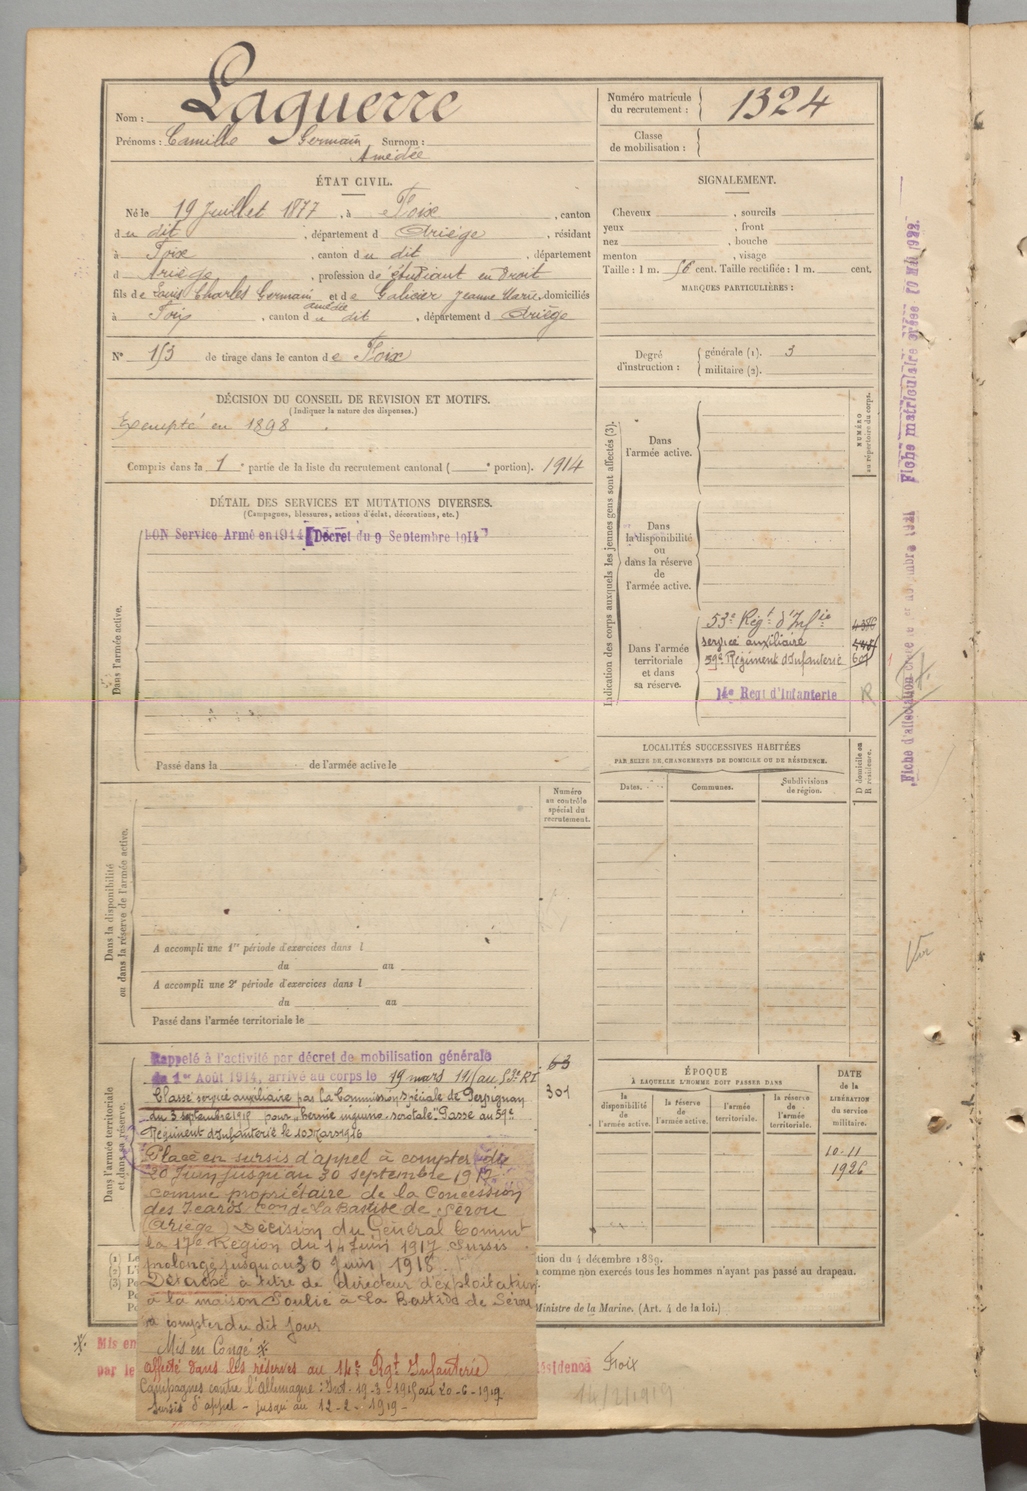 Nom : Laguerre
Prénoms : Camille Germain Surnom :
Amédée
Numéro matricule
du recrutement : 1324
Classe
de mobilisation :
ÉTAT CIVIL.
Né le 19 Juillet 1877, à Foix, canton
du dit, département d Ariège, résidant
à Foix, canton du dit, département
d Ariège, profession d'étudiant en Droit
fils de Louis Charles Germain et de Galicier Jeanne Marie domiciliés
amédée
à Foix, canton du dit, département d Ariège
N° 153 de tirage dans le canton de Foix
SIGNALEMENT.
Cheveux , sourcils
yeux , front
nez , bouche
menton , visage
Taille : 1 m. 56 cent. Taille rectifiée : 1 m. cent.
MARQUES PARTICULIÈRES :
Degré
d'instruction :
générale (1). 3
militaire (2).
DÉCISION DU CONSEIL DE REVISION ET MOTIFS.
(Indiquer la nature des dispenses.)
Exempté en 1898.
Compris dans la 1e partie de la liste du recrutement cantonal ( e portion). 1914
DÉTAIL DES SERVICES ET MUTATIONS DIVERSES.
(Campagnes, blessures, actions d'éclat, décorations, etc.)
BON Service Armé en 1914 [Décret du 9 Septembre 1914
Dans l'armée active.
Passé dans la de l'armée active le
Indication des corps auxquels les jeunes gens sont affectés (3).
NUMÉRO
au répertoire du corps.
Dans
l'armée active.
Dans
la disponibilité
ou
dans la réserve
de
l'armée active.
Dans l'armée
territoriale
et dans
sa réserve.
53e Régt d'Infie
service auxiliaire
59e Régiment d'Infanterie 601
14e Regt d'Infanterie R
LOCALITÉS SUCCESSIVES HABITÉES
PAR SUITE DE CHANGEMENTS DE DOMICILE OU DE RÉSIDENCE.
Dates.
Communes.
Subdivisions
de région.
D domicile ou
R résidence.
Dans la disponibilité
ou dans la réserve de l'armée active.
Numéro
au contrôle
spécial du
recrutement.
A accompli une 1re période d'exercices dans l
du au
A accompli une 2e période d'exercices dans l
du au
Passé dans l'armée territoriale le
Dans l'armée territoriale
et dans sa réserve.
Rappelé à l'activité par décret de mobilisation générale
du 1er Août 1914, arrivé au corps le 19 mars 1915 au 53e RI
Classé service auxiliaire par la Commission Spéciale de Perpignan
du 3 septembre 1915 pour "hernie inguino-scrotale" Passé au 59e
Régiment d'Infanterie le 10 Mars 1916
63
301
Placé en sursis d'appel à compter du
20 Juin jusqu'au 30 septembre 1917
comme propriétaire de la Concession
des Icards con de La Bastide de Sérou
(Ariège) Décision du Général Commt
la 17e Région du 14 Juin 1917 Sursis
prolongé jusqu'au 30 Juin 1918.
Détaché à titre de directeur d'exploitation
à la maison Soulié à La Bastide de Sérou
à compter du dit jour
Mis en Congé *
affecté dans les réserves au 14e Rgt Infanterie
Campagnes contre l'Allemagne : Int. 19-3-1915 au 20-6-1917
Sursis d'appel - jusqu'au 12-2-1919 -
ÉPOQUE
À LAQUELLE L'HOMME DOIT PASSER DANS
la
disponibilité
de
l'armée active.
la réserve
de
l'armée active.
l'armée
territoriale.
la réserve
de
l'armée
territoriale.
DATE
de la
LIBÉRATION
du service
militaire.
10-11
1926
(1) Le
(2) L'I
(3) Po
tion du 4 décembre 1889.
comme non exercés tous les hommes n'ayant pas passé au drapeau.
Ministre de la Marine. (Art. 4 de la loi.)
* Mis en
par le
ésidence Foix
14/2/1919
Fiche matriculaire créée 10 MAI 1922.